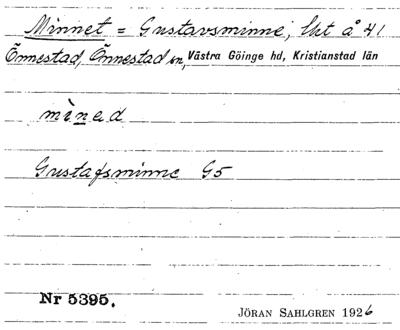 Minnet = Gustavsminne, lht å 41
Önnestad, Önnestad sn, Västra Göinge hd, Kristianstad län
mìned
Gustafsminne G5
Nr 5395.
JÖRAN SAHLGREN 1926